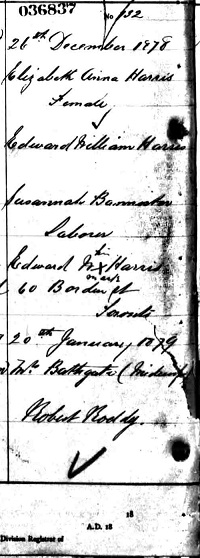 036837
No 132
26th December 1878
Elizabeth Anna Harris
Female
Edward William Harris
Susannah Bannister
Laborer
Edward W X Harris
his
mark
60 Borden St
Toronto
20th January 1879
Mrs Bathgate (Midwife)
Robert Roddy.
18
A.D. 18
Division Registrar of